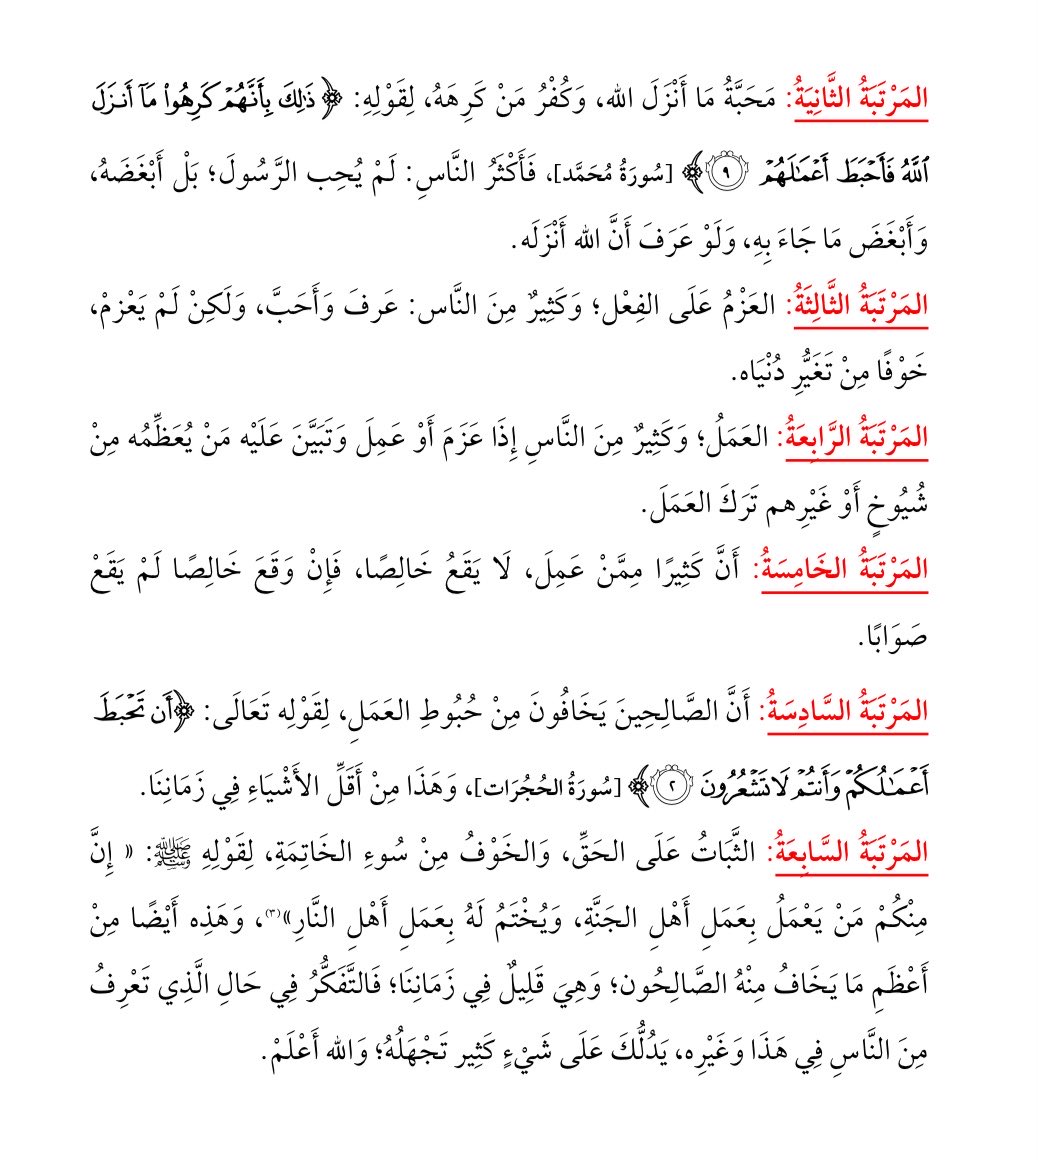 المَرْتَبَةُ الثَّانِيَةُ: مَحَبَّةُ مَا أَنْزَلَ الله، وَكُفْرُ مَنْ كَرِهَهُ، لِقَوْلِهِ: ﴿ذَٰلِكَ بِأَنَّهُمۡ كَرِهُواْ مَآ أَنزَلَ
ٱللَّهُ فَأَحۡبَطَ أَعۡمَٰلَهُمۡ ٩﴾ [سُورَةُ مُحَمَّد]، فَأَكْثَرُ النَّاسِ: لَمْ يُحِب الرَّسُولَ؛ بَلْ أَبْغَضَهُ،
وَأَبْغَضَ مَا جَاءَ بِهِ، وَلَوْ عَرَفَ أَنَّ الله أَنْزَلَه.
المَرْتَبَةُ الثَّالِثَةُ: العَزْمُ عَلَى الفِعْل؛ وَكَثِيرٌ مِنَ النَّاس: عَرفَ وَأَحَبَّ، وَلَكِنْ لَمْ يَعْزمْ،
خَوْفًا مِنْ تَغَيُّرِ دُنْيَاه.
المَرْتَبَةُ الرَّابِعَةُ: العَمَلُ؛ وَكَثِيرٌ مِنَ النَّاسِ إِذَا عَزَمَ أَوْ عَمِلَ وَتَبَيَّنَ عَلَيْه مَنْ يُعَظِّمُه مِنْ
شُيُوخٍ أَوْ غَيْرِهم تَرَكَ العَمَلَ.
المَرْتَبَةُ الخَامِسَةُ: أَنَّ كَثِيرًا مِمَّنْ عَمِلَ، لَا يَقَعُ خَالِصًا، فَإِنْ وَقَعَ خَالِصًا لَمْ يَقَعْ
صَوَابًا.
المَرْتَبَةُ السَّادِسَةُ: أَنَّ الصَّالِحِينَ يَخَافُونَ مِنْ حُبُوطِ العَمَلِ، لِقَوْلِه تَعَالَى: ﴿أَن تَحۡبَطَ
أَعۡمَٰلُكُمۡ وَأَنتُمۡ لَا تَشۡعُرُونَ ٢﴾ [سُورَةُ الحُجُرَات]، وَهَذَا مِنْ أَقَلِّ الأَشْيَاءِ فِي زَمَانِنَا.
المَرْتَبَةُ السَّابِعَةُ: الثَّبَاتُ عَلَى الحَقِّ، وَالخَوْفُ مِنْ سُوءِ الخَاتِمَةِ، لِقَوْلِهِ ﷺ: « إِنَّ
مِنْكُمْ مَنْ يَعْمَلُ بِعَمَلِ أَهْلِ الجَنَّةِ، وَيُخْتَمُ لَهُ بِعَمَلِ أَهْلِ النَّارِ»(٣)، وَهَذِه أَيْضًا مِنْ
أَعْظَمِ مَا يَخَافُ مِنْهُ الصَّالِحُون؛ وَهِيَ قَلِيلٌ فِي زَمَانِنَا؛ فَالتَّفَكُّرُ فِي حَالِ الَّذِي تَعْرِفُ
مِنَ النَّاسِ فِي هَذَا وَغَيْرِه، يَدُلُّكَ عَلَى شَيْءٍ كَثِير تَجْهَلُهُ؛ وَالله أَعْلَمْ.